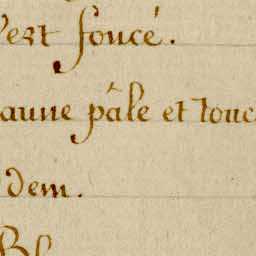 Vert foncé.
jaune pâle et fonc
dem.
Bl